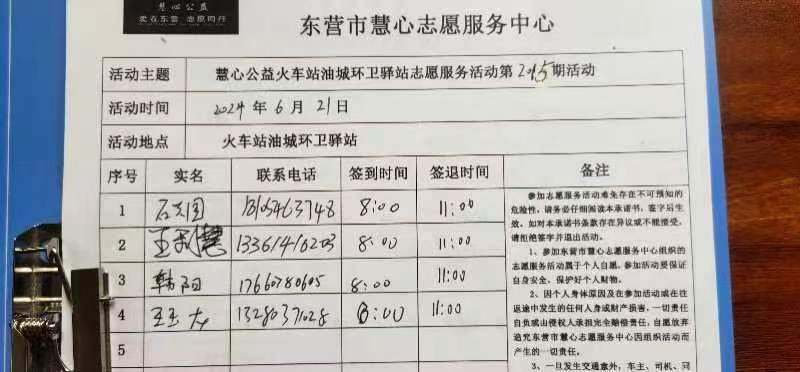 慧心公益
爱在东营 志愿同行
东营市慧心志愿服务中心
活动主题 慧心公益火车站油城环卫驿站志愿服务活动第 295 期活动
活动时间 2024 年 6 月 21 日
活动地点 火车站油城环卫驿站
序号 实名 联系电话 签到时间 签退时间 备注
1 8:00 11:00
2 13361410203 8:00 11:00
3 韩阳 17660780605 8:00 11:00
4 13280371028 8:00 11:00
5
参加志愿服务活动难免存在不可预知的
危险性，请务必仔细阅读本承诺书，签字后生
效。如对本承诺书条款存在异议或不能接受，
请拒绝签字并退出活动。
1、参加东营市慧心志愿服务中心组织的
志愿服务活动属于个人自愿。参加活动要保证
自身安全，保护好个人财物。
2、因个人身体原因及在参加活动或在往
返途中发生的任何人身或财产损害，一切责任
自负或由侵权人承担完全赔偿责任，自愿放弃
追究东营市慧心志愿服务中心因组织活动而
产生的一切责任。
3、一旦发生交通意外，车主、司机、同